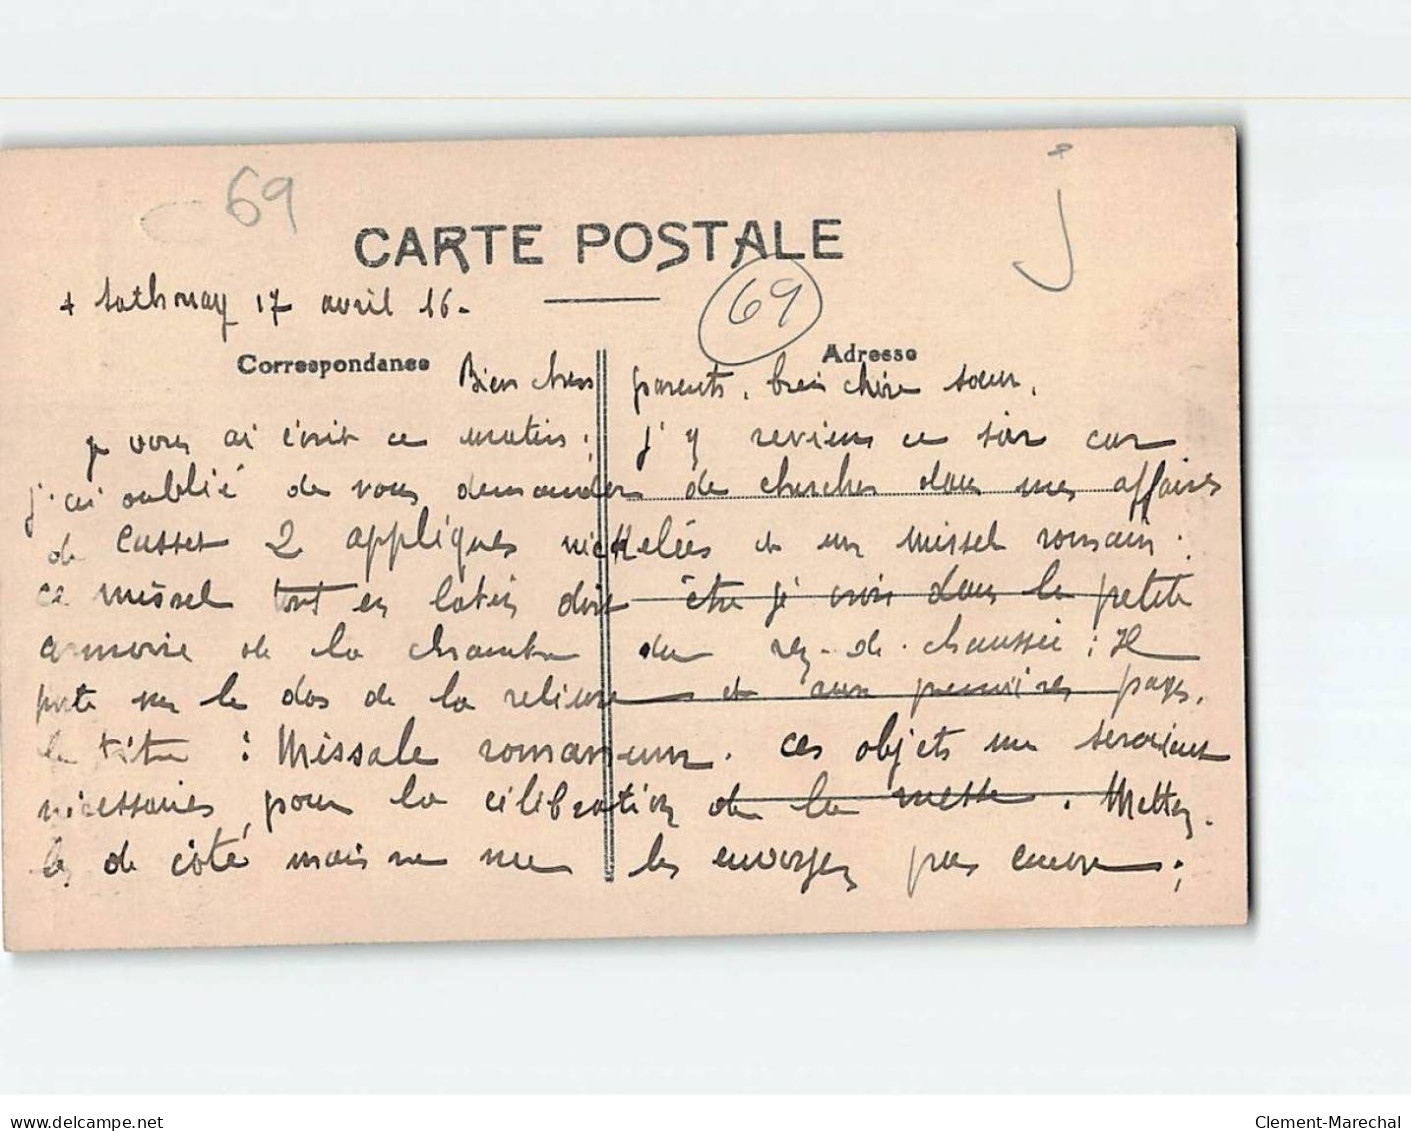 69
J
CARTE POSTALE
+ Sathonay 17 avril 16.
69
Correspondance
Adresse
Bien chers parents, bien chère sœur,
je vous ai écrit ce matin ; j'y reviens ce soir car
j'ai oublié de vous demander de chercher dans mes affaires
de 2 appliques nickelées et un missel romain ;
ce missel tout en latin doit être je crois dans la petite
armoire de la chambre du rez-de-chaussée ; Il
porte sur le dos de la reliure et aux premières pages,
le titre : Missale romanum. Ces objets me seraient
nécessaires pour la célébration de la messe. Mettez-
les de côté mais ne me les envoyez pas encore ;
delcampe.net
Clement-Marechal